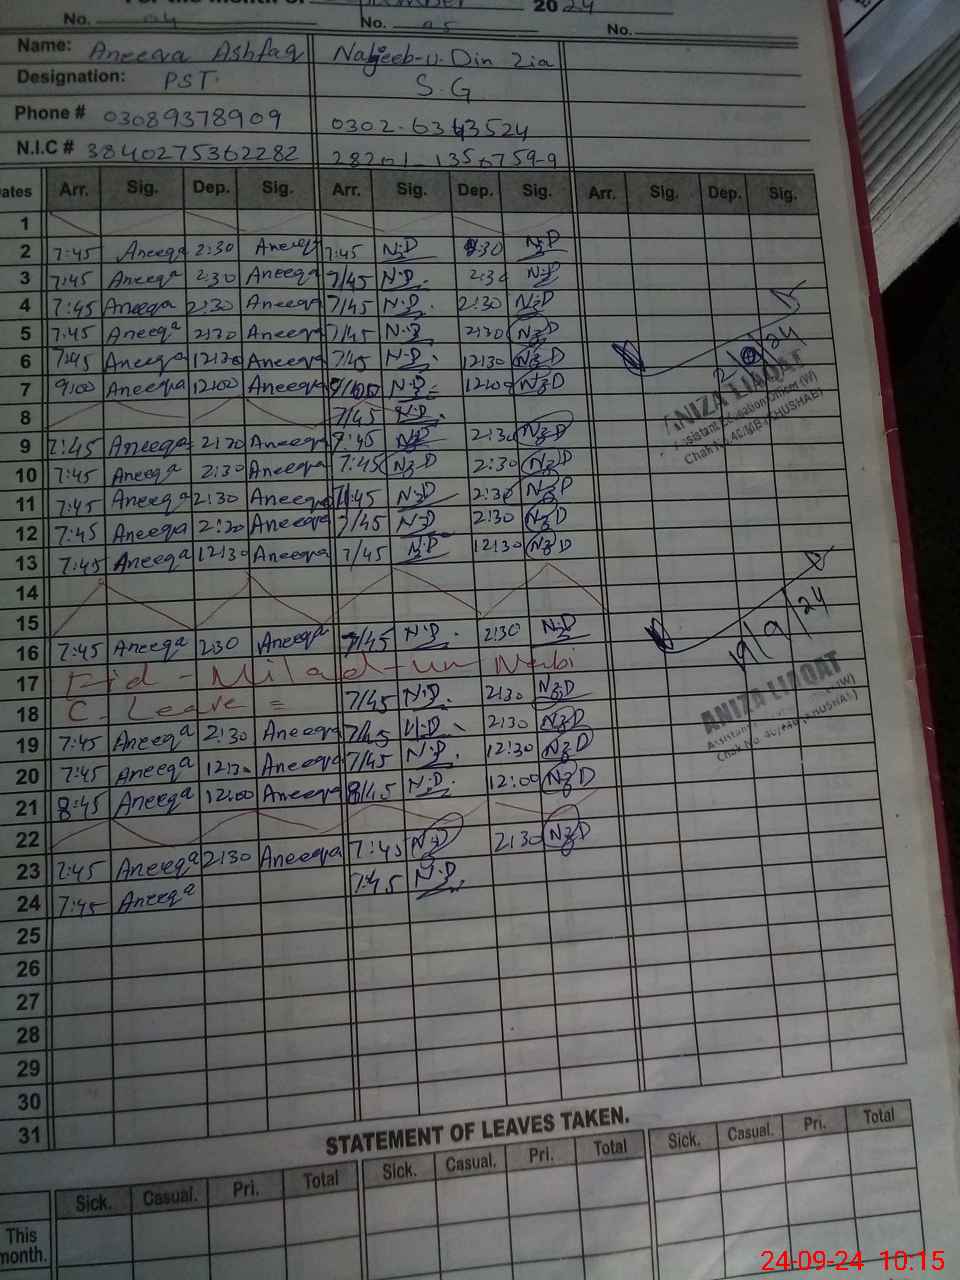 For the month of September 2024
No. 04 No. 05 No.
Name: Aneeqa Ashfaq Najeeb-u-Din Zia
Designation: PST. S.G
Phone # 03089378909 0302-6343524
N.I.C # 3840275362282 28201-1356759-9
Dates Arr. Sig. Dep. Sig. Arr. Sig. Dep. Sig. Arr. Sig. Dep. Sig.
1
2 7:45 Aneeqa 2:30 Aneeqa 7:45 N.D 2:30 NZD
3 7:45 Aneeqa 2:30 Aneeqa 7/45 N.D. 2:30 NZD
4 7:45 Aneeqa 2:30 Aneeqa 7/45 N.D. 2:30 NZD
5 7:45 Aneeqa 2:30 Aneeqa 7/45 N.D. 2:30 NZD
6 7:45 Aneeqa 12:30 Aneeqa 7/45 N.D. 12:30 NZD
7 9:00 Aneeqa 12:00 Aneeqa 9/00 N.D. 12:00 NZD
8 7/45 N.D.
9 7:45 Aneeqa 2:30 Aneeqa 7:45 NZD 2:30 NZD
10 7:45 Aneeqa 2:30 Aneeqa 7:45 NZD 2:30 NZD
11 7:45 Aneeqa 2:30 Aneeqa 7:45 NZD 2:30 NZD
12 7:45 Aneeqa 2:30 Aneeqa 7/45 NZD 2:30 NZD
13 7:45 Aneeqa 12:30 Aneeqa 7/45 NZD 12:30 NZD
14
15
16 7:45 Aneeqa 2:30 Aneeqa 7/45 N.D. 2:30 NZD
17 Eid - Milad-un Nabi
18 C. Leave = 7/45 N.D. 2:30 NZD
19 7:45 Aneeqa 2:30 Aneeqa 7/45 N.D. 2:30 NZD
20 7:45 Aneeqa 12:30 Aneeqa 7/45 N.D. 12:30 NZD
21 8:45 Aneeqa 12:00 Aneeqa 8/45 N.D. 12:00 NZD
22
23 7:45 Aneeqa 2:30 Aneeqa 7:45 NZD 2:30 NZD
24 7:45 Aneeqa 7:45 N.D.
25
26
27
28
29
30
31
ANIZA LIAQAT
Assistant Education Officer (W)
19/9/24
ANIZA LIAQAT
STATEMENT OF LEAVES TAKEN.
Sick. Casual. Pri. Total Sick. Casual. Pri. Total Sick. Casual. Pri. Total
This
month.
24-09-24 10:15